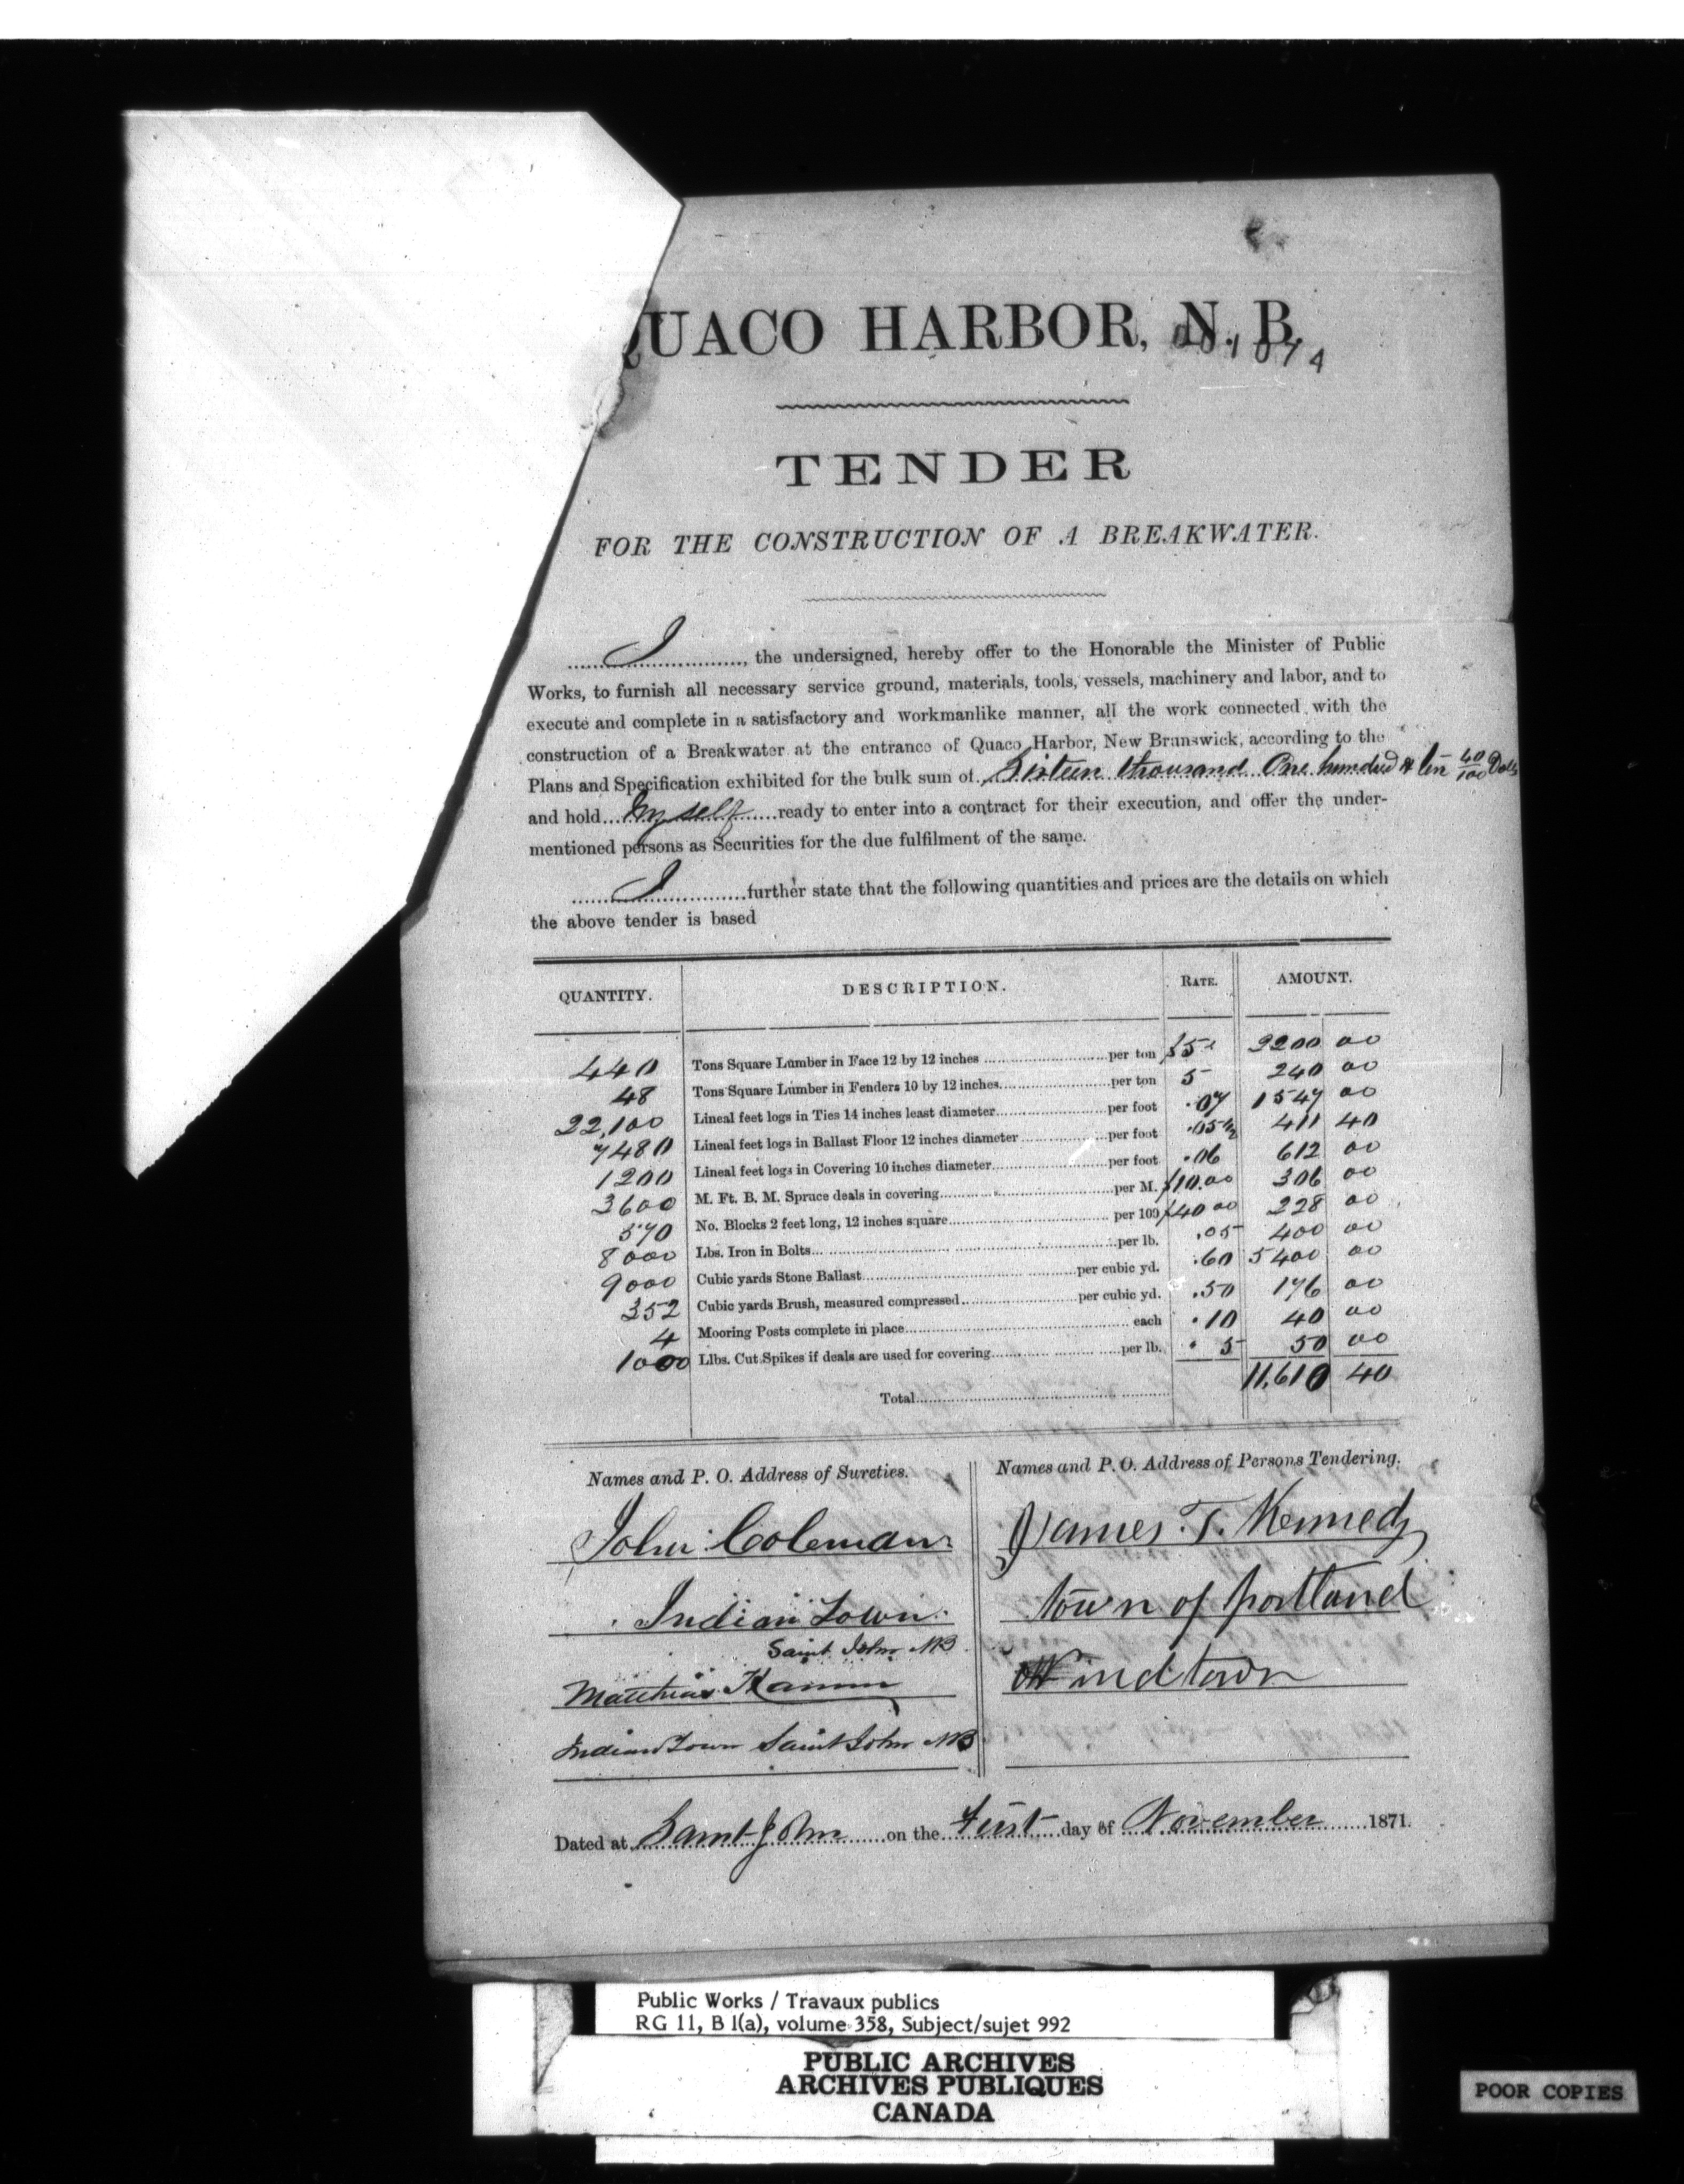 QUACO HARBOR, N. B.
TENDER
FOR THE CONSTRUCTION OF A BREAKWATER.
I, the undersigned, hereby offer to the Honorable the Minister of Public
Works, to furnish all necessary service ground, materials, tools, vessels, machinery and labor, and to
execute and complete in a satisfactory and workmanlike manner, all the work connected with the
construction of a Breakwater at the entrance of Quaco Harbor, New Brunswick, according to the
Plans and Specification exhibited for the bulk sum of Sixteen thousand One hundred & ten 40/100 Dolls
and hold my self ready to enter into a contract for their execution, and offer the under-
mentioned persons as Securities for the due fulfilment of the same.
I further state that the following quantities and prices are the details on which
the above tender is based
QUANTITY. DESCRIPTION. RATE. AMOUNT.
440 Tons Square Lumber in Face 12 by 12 inches per ton $5 2200 00
48 Tons Square Lumber in Fenders 10 by 12 inches per ton 5 240 00
22,100 Lineal feet logs in Ties 14 inches least diameter per foot .07 1547 00
7480 Lineal feet logs in Ballast Floor 12 inches diameter per foot .05½ 411 40
1200 Lineal feet logs in Covering 10 inches diameter per foot .06 612 00
3600 M. Ft. B. M. Spruce deals in covering per M. $10.00 306 00
570 No. Blocks 2 feet long, 12 inches square per 100 $40 00 228 00
8000 Lbs. Iron in Bolts per lb. .05 400 00
9000 Cubic yards Stone Ballast per cubic yd. .60 5400 00
352 Cubic yards Brush, measured compressed per cubic yd. .50 176 00
4 Mooring Posts complete in place each .10 40 00
1000 Llbs. Cut Spikes if deals are used for covering per lb. . 5 50 00
Total 11,610 40
Names and P. O. Address of Sureties.
John Coleman
Indian Town
Saint John NB
Matthias Hamm
Indian Town Saint John NB
Names and P. O. Address of Persons Tendering.
James. T. Kennedy
town of portland
indtown
Dated at Saint John on the First day of November 1871.
Public Works / Travaux publics
RG 11, B 1(a), volume 358, Subject/sujet 992
PUBLIC ARCHIVES
ARCHIVES PUBLIQUES
CANADA
POOR COPIES